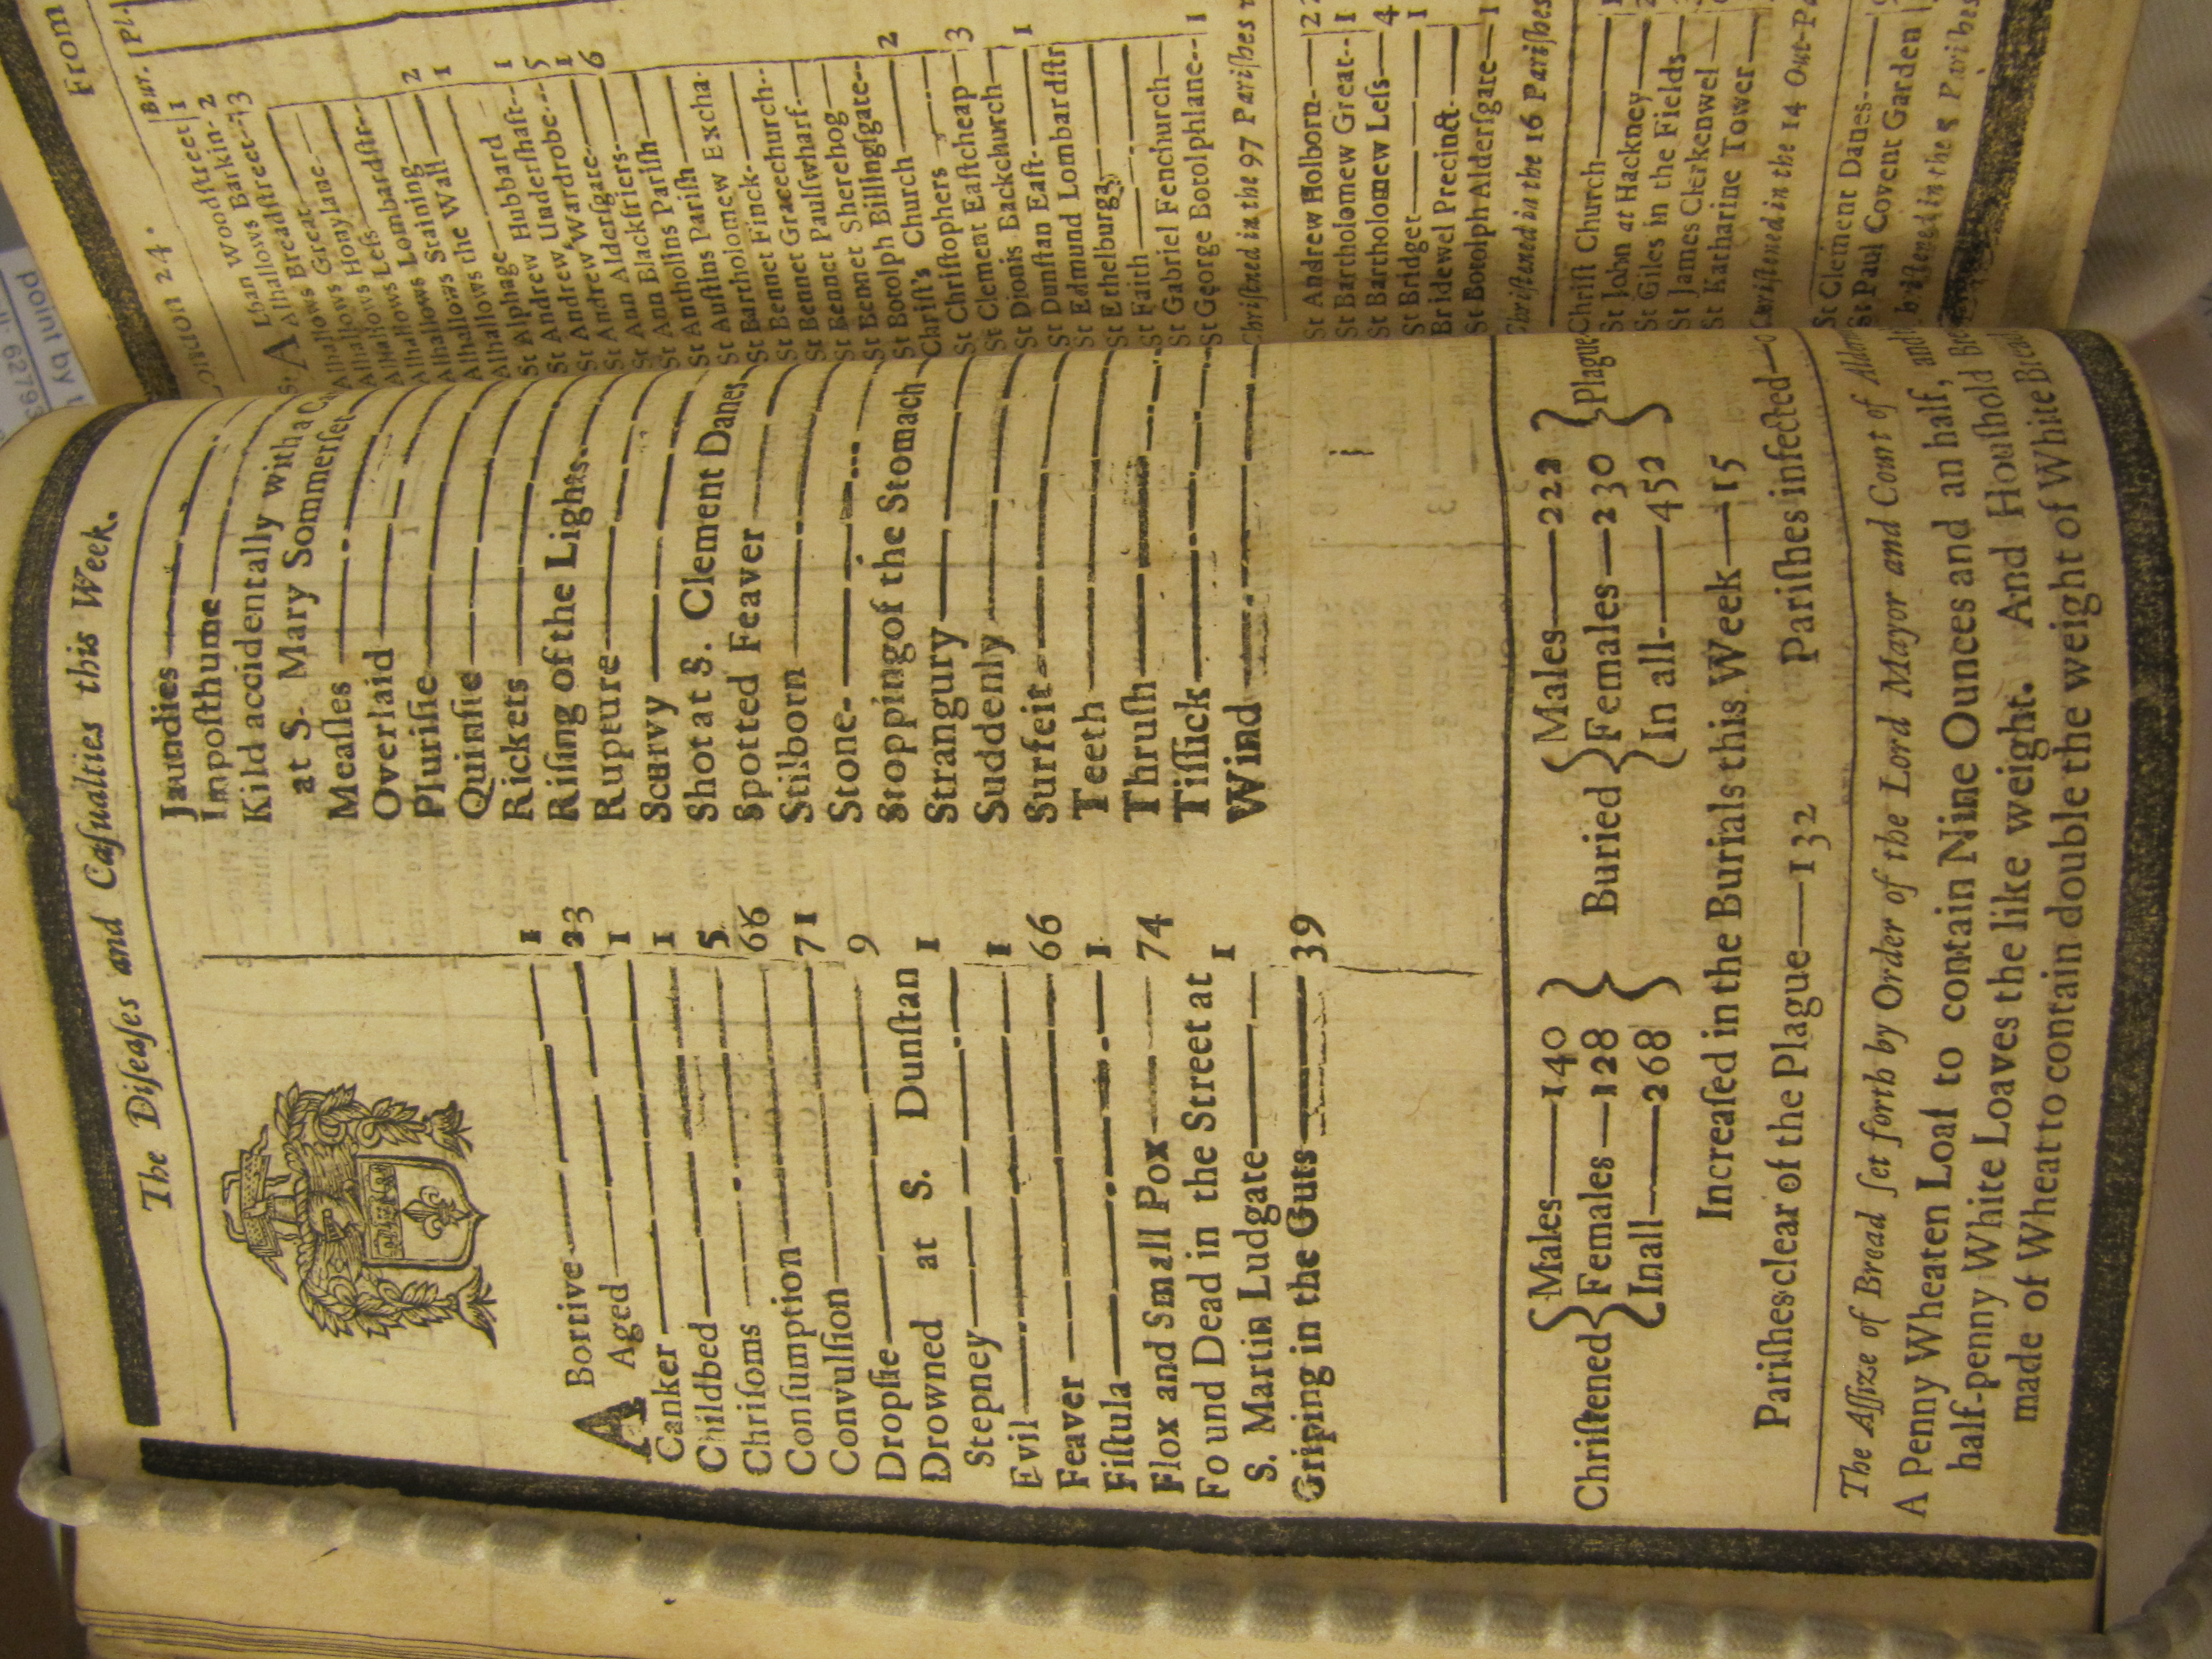 The Diſeaſes and Caſualties this Week.
ABortive 1
Aged 23
Canker 1
Childbed 1
Chriſoms 5
Conſumption 66
Convulſion 71
Dropſie 9
Drowned at S. Dunſtan
Stepney 1
Evil 1
Feaver 66
Fiſtula 1
Flox and Small Pox 74
Found Dead in the Street at
S. Martin Ludgate 1
Griping in the Guts 39
Jaundies
Impoſthume
Kild accidentally with a
at S. Mary Sommerſet
Meaſles
Overlaid
Pluriſie
Quinſie
Rickets
Riſing of the Lights
Rupture
Scurvy
Shot at S. Clement Danes
Spotted Feaver
Stilborn
Stone
Stopping of the Stomach
Strangury
Suddenly
Surfeit
Teeth
Thruſh
Tiſſick
Wind
Chriſtened { Males—140
Females—128
In all—268 }
Buried { Males—222
Females—230
In all—452 } Plague
Increaſed in the Burials this Week—15
Pariſhes clear of the Plague—132 Pariſhes infected—0
The Aſſize of Bread ſet forth by Order of the Lord Mayor and Court of
A Penny Wheaten Loaf to contain Nine Ounces and an half, and
half-penny White Loaves the like weight. And Houſhold
made of Wheat to contain double the weight of White
From
24.
Bur. Pl.
St Alban Woodſtreet 1
Alhallows Barkin 2
Alhallows Breadſtreet 3
Alhallows Great
Alhallows Honylane
Alhallows Leſs
Alhallows Lombardſtr
Alhallows Staining 2
Alhallows the Wall 1
Alphage
St Andrew Hubbard 1
St Andrew Underſhaft 5
St Andrew Wardrobe 1
St Ann Alderſgate 6
St Ann Blackfriers
St Antholins Pariſh
St Auſtins Pariſh
St Bartholomew Excha
St Bennet Finck
St Bennet Gracechurch
St Bennet Paulſwharf
St Bennet Sherehog
St Botolph Billingſgate
Chriſt's Church 2
St Chriſtophers
St Clement Eaſtcheap 3
St Dionis Backchurch
St Dunſtan Eaſt 1
St Edmund Lombardſtr
St Ethelburga
St Faith
St Gabriel Fenchurch
St George Botolphlane 1
Chriſtened in the 97 Pariſhes
St Andrew Holborn
St Bartholomew Great 1
St Bartholomew Leſs 4
St Bridget 1
Bridewel Precinct
St Botolph Alderſgate
Chriſtened in the 16 Pariſhes
Chriſt Church
St John at Hackney
St Giles in the Fields
St James Clerkenwel
St Katharine Tower
Chriſtened in the 14 Out-
St Clement Danes
St Paul Covent Garden
in the 5 Pariſhes